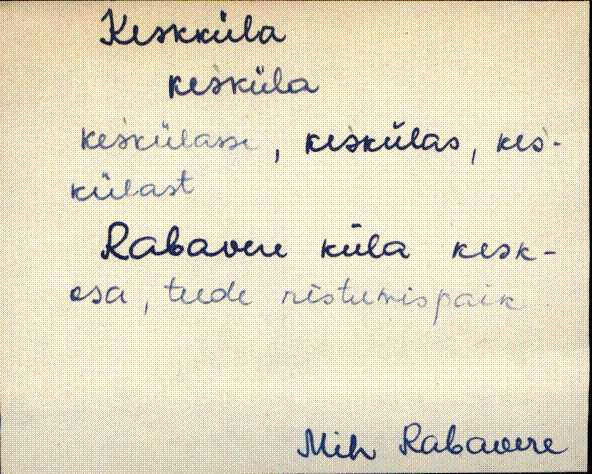 Keskküla
keśküla
keśkülasse, keśkülas, keś-
külast
Rabavere küla kesk-
osa, teede ristumispaik
Mih Rabavere